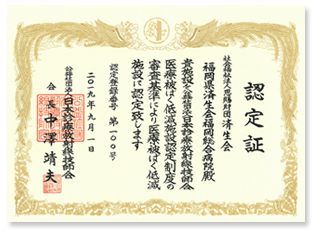 認定証
社会福祉法人恩賜財団済生会
福岡県済生会福岡総合病院殿
貴施設を公益社団法人日本診療放射線技師会
医療被ばく低減施設認定制度の
審査基準により医療被ばく低減
施設に認定致します
認定登録番号 第一〇〇号
二〇一九年九月一日
公益社団法人日本診療放射線技師会
会長 中澤靖夫